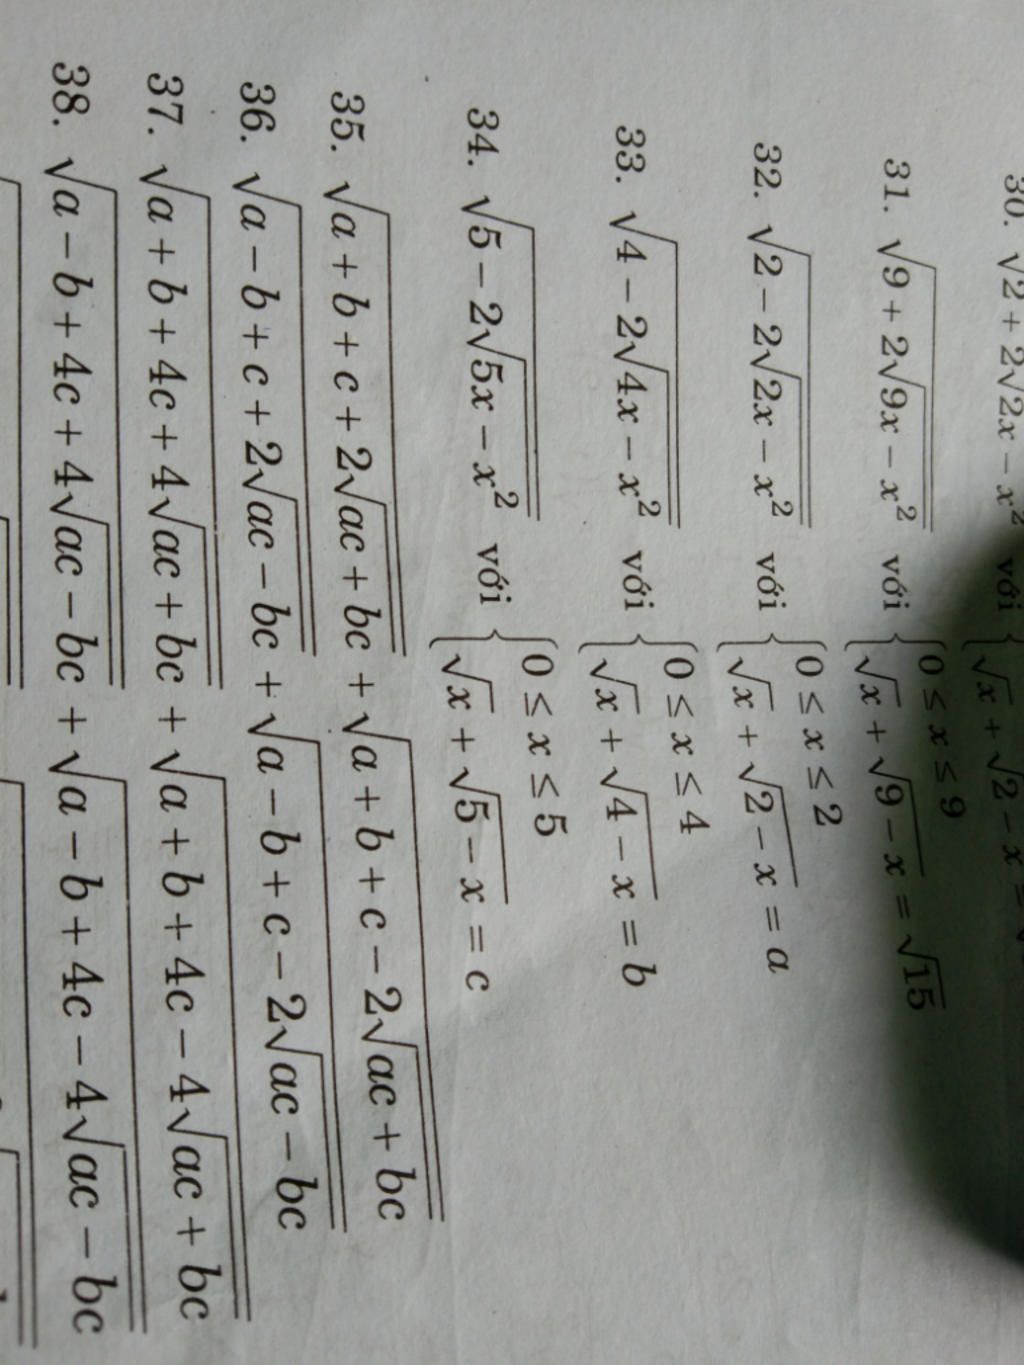 30. √(2 + 2√(2x − x²)) với { √x + √(2 − x) =
31. √(9 + 2√(9x − x²)) với { 0 ≤ x ≤ 9
√x + √(9 − x) = √15
32. √(2 − 2√(2x − x²)) với { 0 ≤ x ≤ 2
√x + √(2 − x) = a
33. √(4 − 2√(4x − x²)) với { 0 ≤ x ≤ 4
√x + √(4 − x) = b
34. √(5 − 2√(5x − x²)) với { 0 ≤ x ≤ 5
√x + √(5 − x) = c
35. √(a + b + c + 2√(ac + bc)) + √(a + b + c − 2√(ac + bc))
36. √(a − b + c + 2√(ac − bc)) + √(a − b + c − 2√(ac − bc))
37. √(a + b + 4c + 4√(ac + bc)) + √(a + b + 4c − 4√(ac + bc))
38. √(a − b + 4c + 4√(ac − bc)) + √(a − b + 4c − 4√(ac − bc))